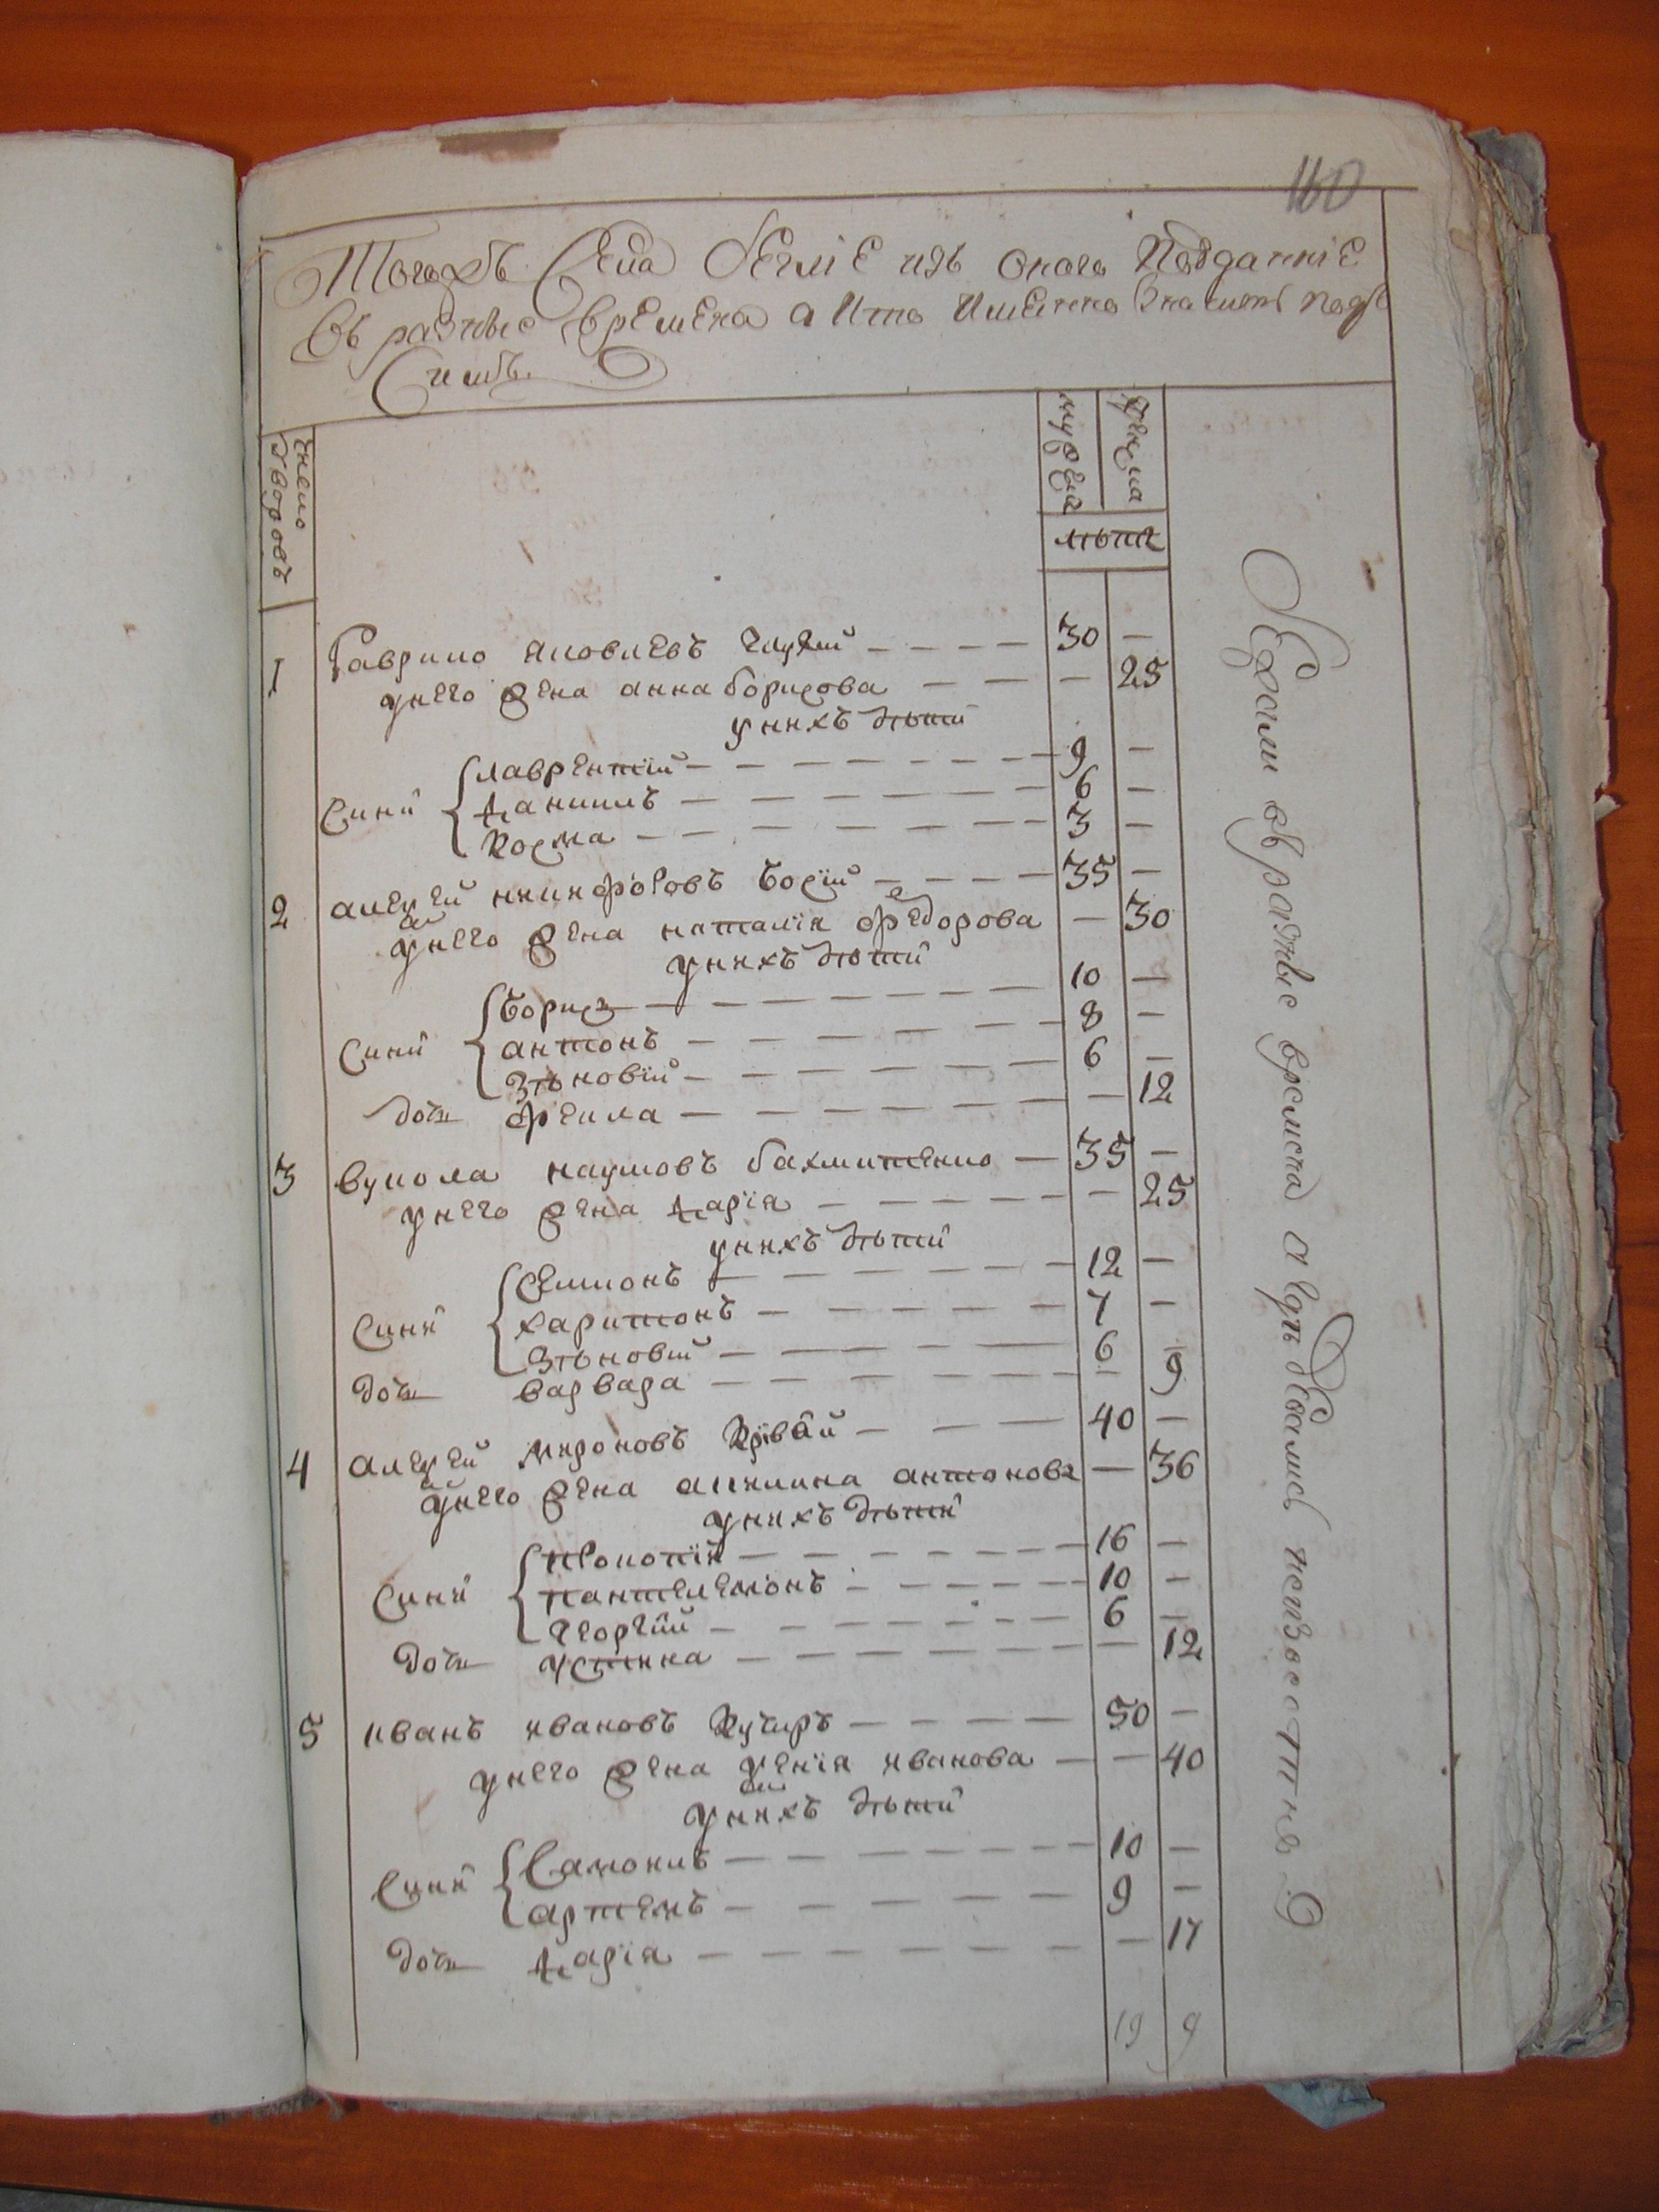 160
Тогожъ Села бегліе изъ оного Подданніе
Въ разные времена а Кто Имѣнно Значитъ подъ
Симъ.
число дворовъ
мужеска
женска
лѣта
1 Гаврило Яковлевъ Глухій — 30 —
у него жена анна борисова — — 25
у нихъ дѣти
Сини
Лаврентій — 9 —
Данило — 6 —
Косма — 3 —
2 алеѯей никифоровъ Босій — 35 —
у него жена наталія федорова — 30
у нихъ дѣти
Сини
Борисъ — 10 —
антонъ — 8 —
Зѣновій — 6 —
дочь фекла — — 12
3 вукола наумовъ бахмитенко — 35 —
у него жена Дарія — — 25
у нихъ дѣти
Сини
Семионъ — 12 —
харитонъ — 7 —
Зѣновій — 6 —
дочь варвара — — 9
4 алеѯей мироновъ Кривій — 40 —
у него жена акилина антонова — 36
у нихъ дѣти
Сини
Прокопій — 16 —
пантелемонъ — 10 —
Георгій — 6 —
дочь устина — — 12
5 иванъ ивановъ Кучиръ — 50 —
у него жена ѯенія иванова — — 40
у нихъ дѣти
Сини
Самоилъ — 10 —
артемъ — 9 —
дочь Дарія — — 17
19 9
Бежали въ разные времена а куда девались неизвестно